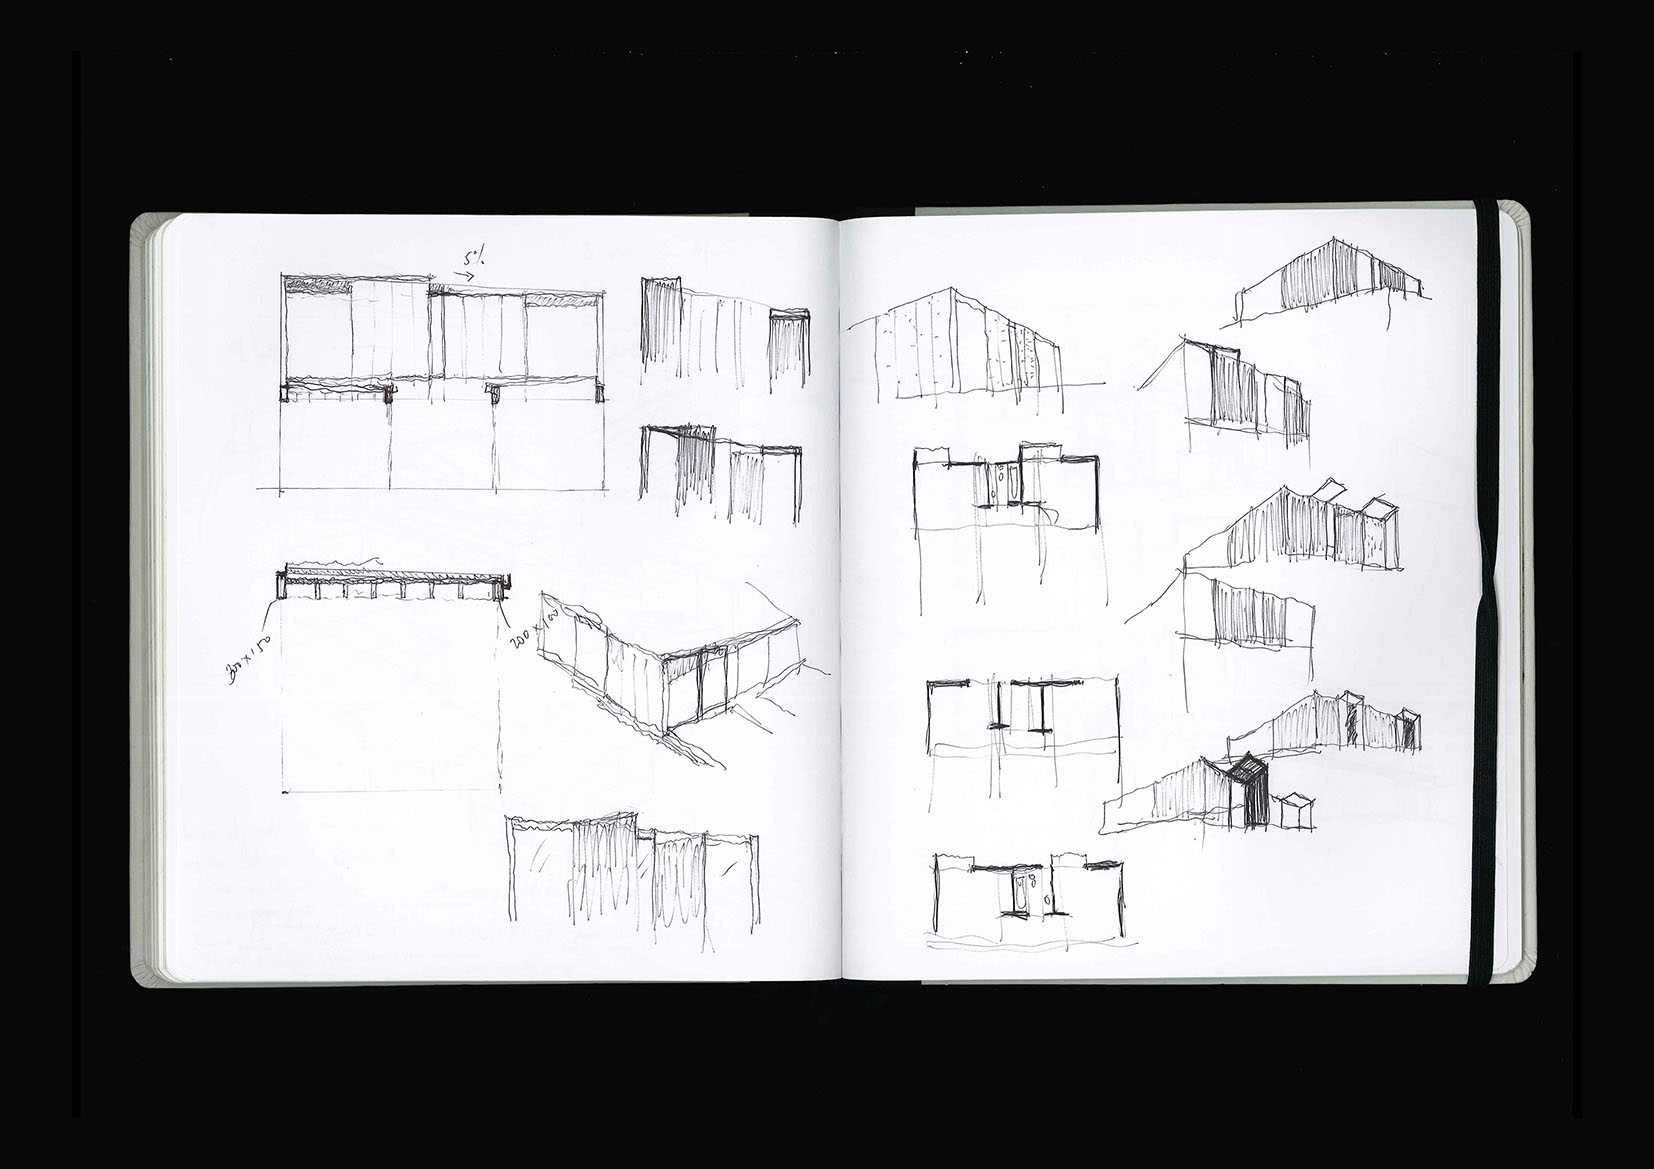 5%
300 x 150
200 x 100